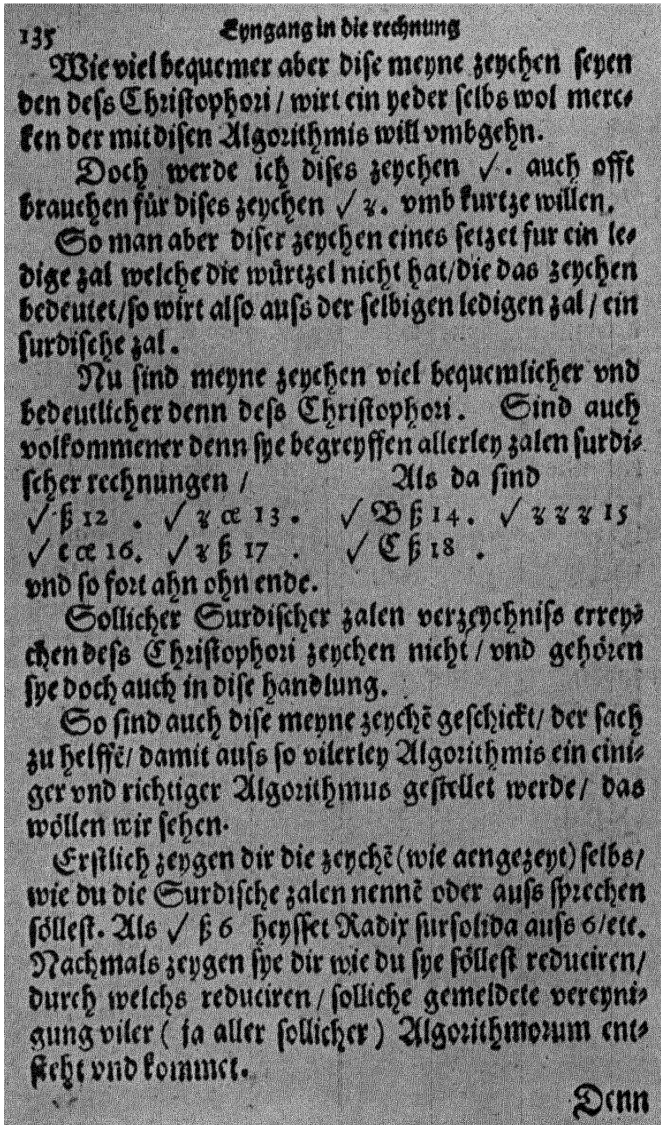 135 Eyngang in die rechnung
Wie viel bequemer aber dise meyne zeychen seyen
den dess Christophori / wirt ein yeder selbs wol merc⸗
ken der mit disen Algorithmis will vmbgehn.
Doch werde ich dises zeychen √. auch offt
brauchen für dises zeychen √ ʒ. vmb kurtze willen.
So man aber diser zeychen eines setzet fur ein le⸗
dige zal welche die würtzel nicht hat/die das zeychen
bedeutet/so wirt also auss der selbigen ledigen zal / ein
surdische zal.
Nu sind meyne zeychen viel bequemlicher vnd
bedeutlicher denn dess Christophori. Sind auch
volkommener denn sye begreyffen allerley zalen surdi⸗
scher rechnungen / Als da sind
√ ß 12 . √ ʒ ce 13. √ B ß 14. √ ʒ ʒ ʒ 15
√ c ce 16. √ ʒ ß 17 . √ C ß 18 .
vnd so fort ahn ohn ende.
Sollicher Surdischer zalen verzeychniss errey⸗
chen dess Christophori zeychen nicht / vnd gehören
sye doch auch in dise handlung.
So sind auch dise meyne zeychē geschickt/ der sach
zu helffē/ damit auss so vilerley Algorithmis ein eini⸗
ger vnd richtiger Algorithmus gestellet werde/ das
wöllen wir sehen.
Erstlich zeygen dir die zeychē (wie aengezeyt) selbs/
wie du die Surdische zalen nennē oder auss sprechen
söllest. Als √ ß 6 heysset Radix sursolida auss 6/etc.
Nachmals zeygen sye dir wie du sye söllest reduciren/
durch welchs reduciren / solliche gemeldete vereyni⸗
gung viler ( ja aller sollicher ) Algorithmorum ent⸗
steht vnd kommet.
Denn